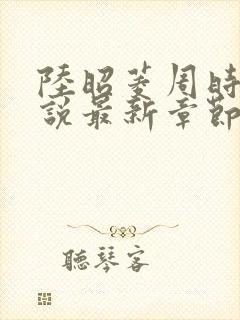 陸昭菱周時
說最新章節
聽琴客